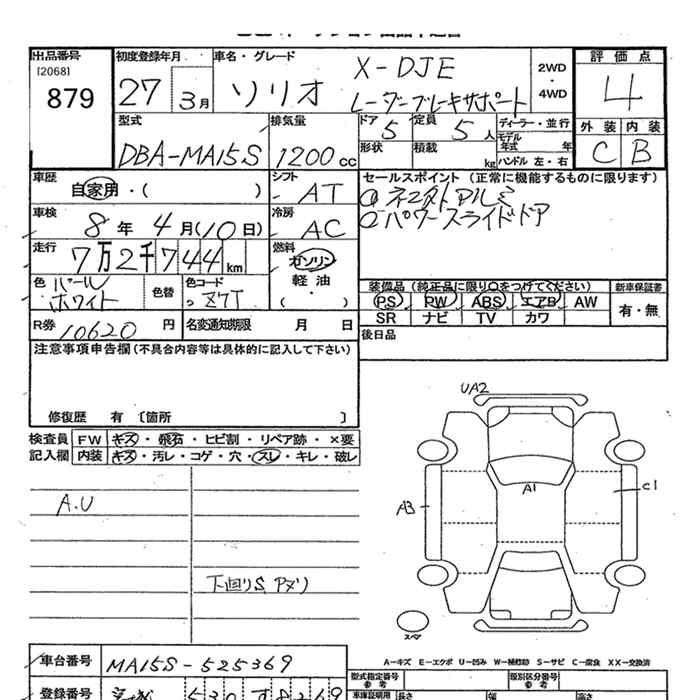 出品番号
[2068]
879
初度登録年月
27 3月
車名・グレード
ソリオ
X-DJE
レーダーブレーキサポート
2WD
・
4WD
評価点
4
外装 内装
C B
型式
DBA-MA15S
排気量
1200cc
ドア 5
定員 5人
形状 積載 kg
ディーラー・並行
モデル年式 年
ハンドル 左・右
車歴
自家用・( )
シフト
AT
車検
8年 4月(10日)
冷房
AC
走行
7万2千744km
燃料
ガソリン
軽油
・
( )
色 パールホワイト
色替
色コード
Z7T
R券 10620円
名変通知期限 月 日
セールスポイント（正常に機能するものに限ります）
パワースライドドア
装備品（純正品に限り○をつけてください）
PS PW ABS エアB AW
SR ナビ TV カワ
新車保証書
有・無
後日品
注意事項申告欄（不具合内容等は具体的に記入して下さい）
修復歴 有〔箇所 〕
検査員記入欄
FW キズ・飛石・ヒビ割・リペア跡・×要
内装 キズ・汚レ・コゲ・穴・スレ・キレ・破レ
A.U
下回りS,アオリ
UA2
A1
A3
C1
スペア
A－キズ E－エクボ U－凹み W－補修跡 S－サビ C－腐食 XX－交換済
車台番号 MA15S-525369
型式指定番号
参考
類別区分番号
参考
登録番号
530 す 8269
車庫証明用 長さ 幅 高さ